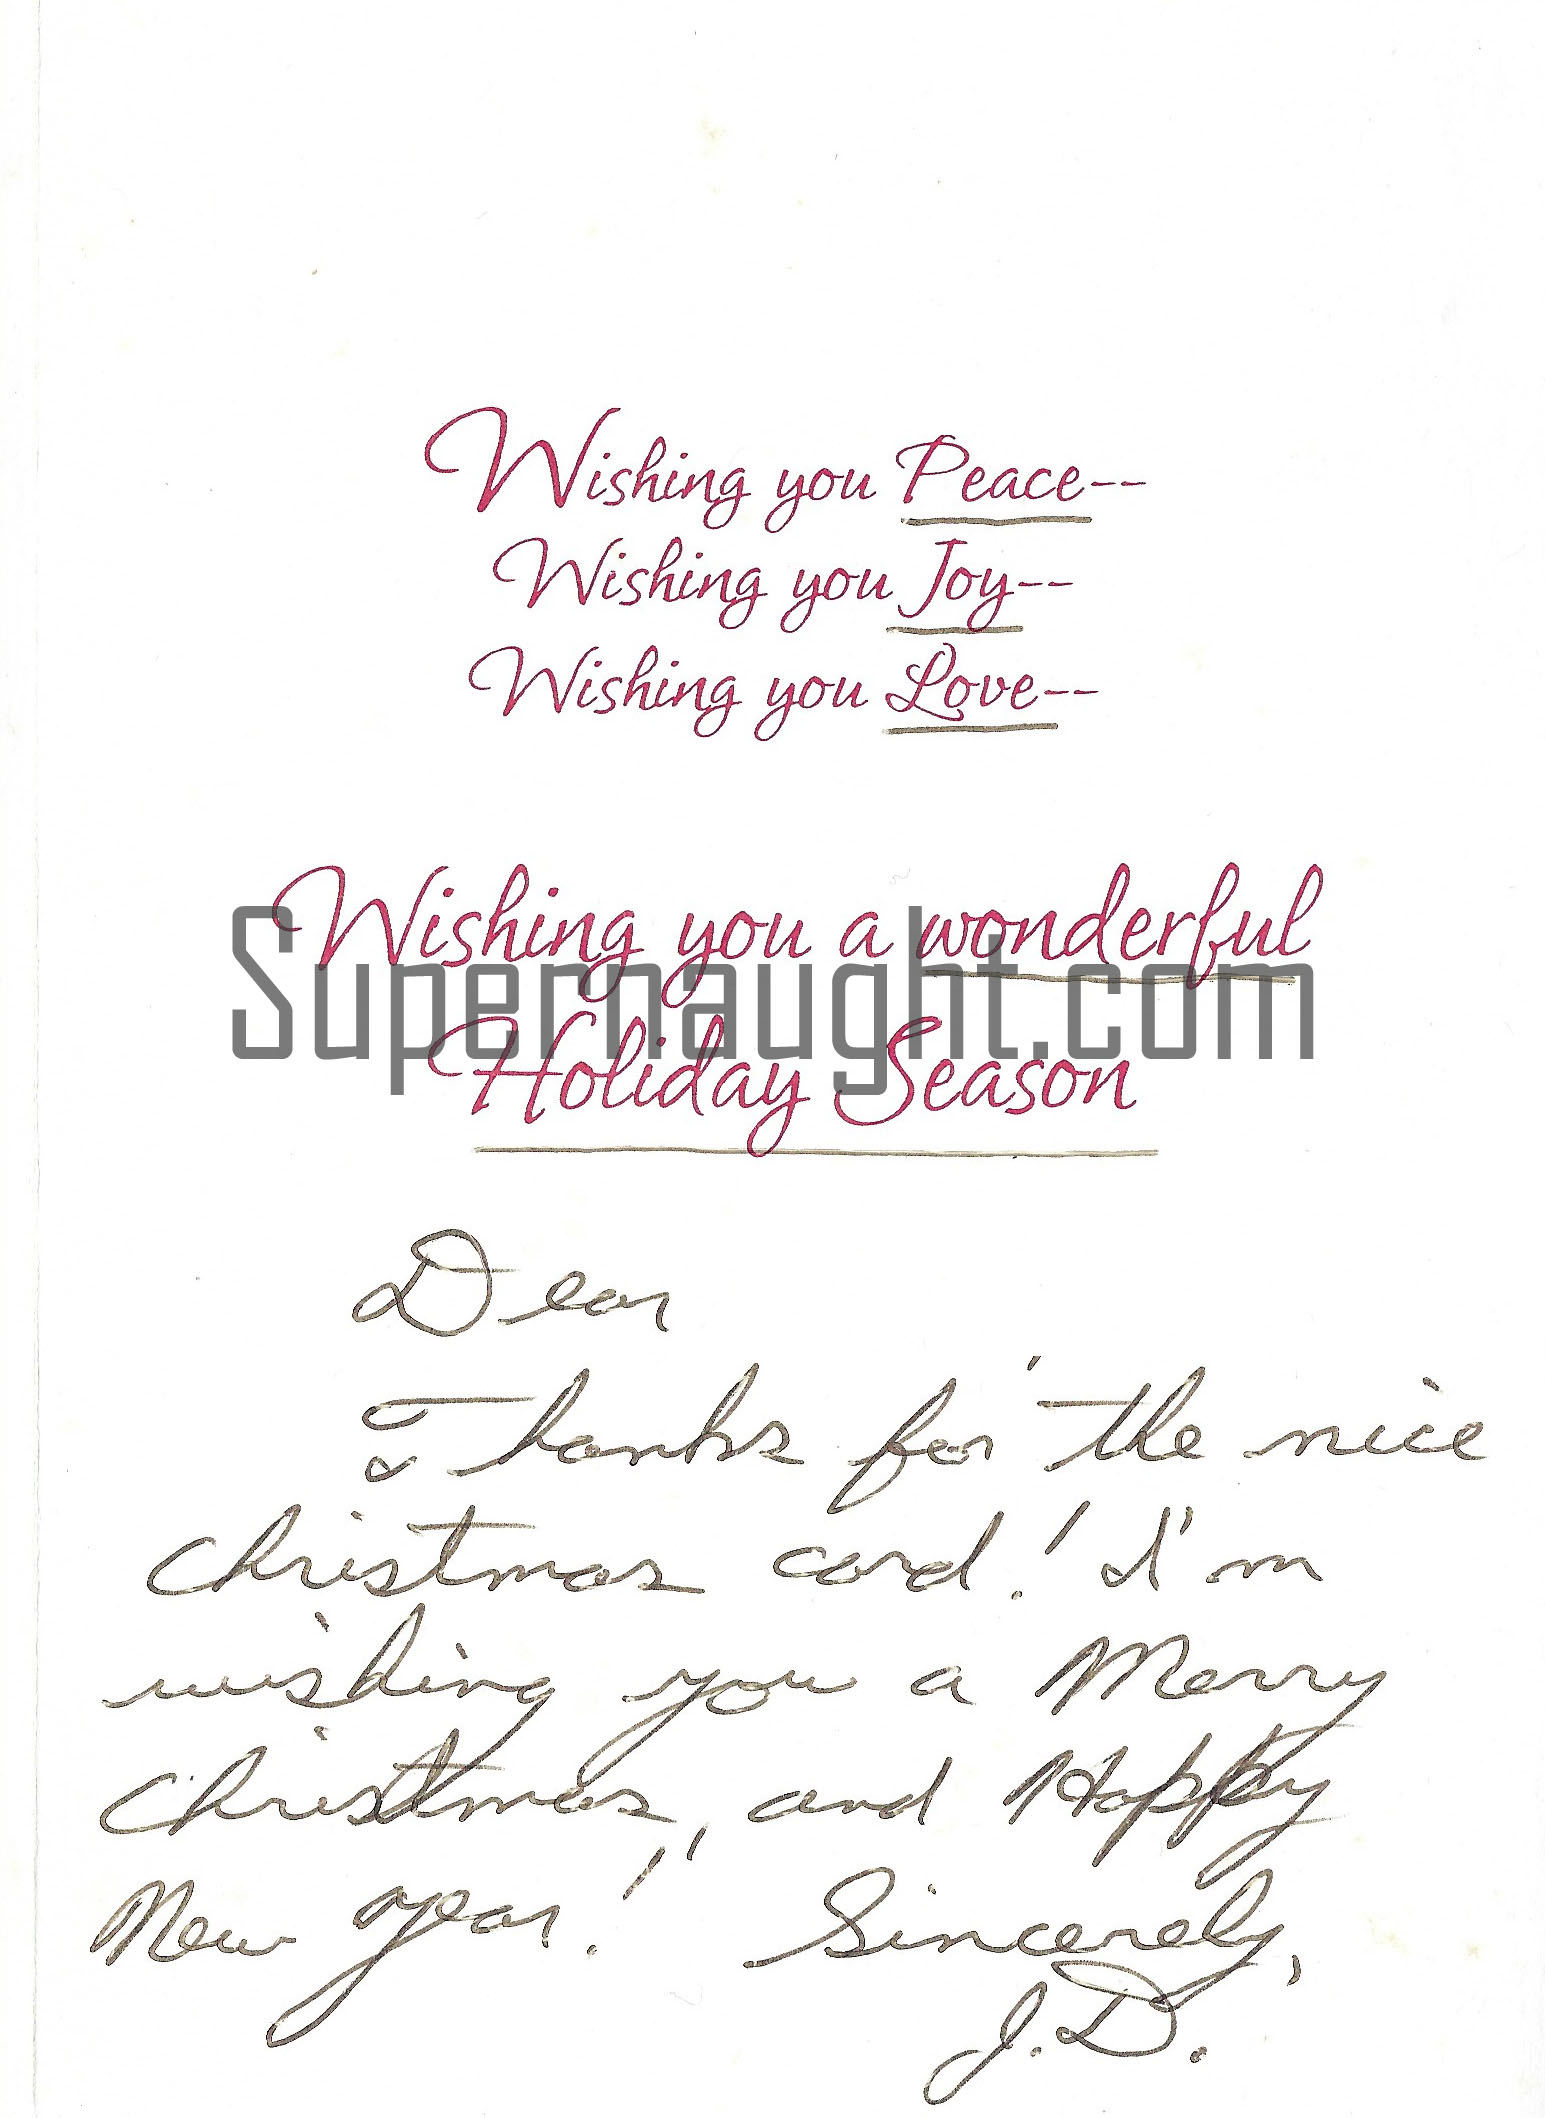 Wishing you Peace--
Wishing you Joy--
Wishing you Love--
Wishing you a wonderful
Supernaught.com
Holiday Season
Dear
Thanks for the nice
Christmas card! I'm
wishing you a Merry
Christmas, and Happy
New year! Sincerely,
J.D.